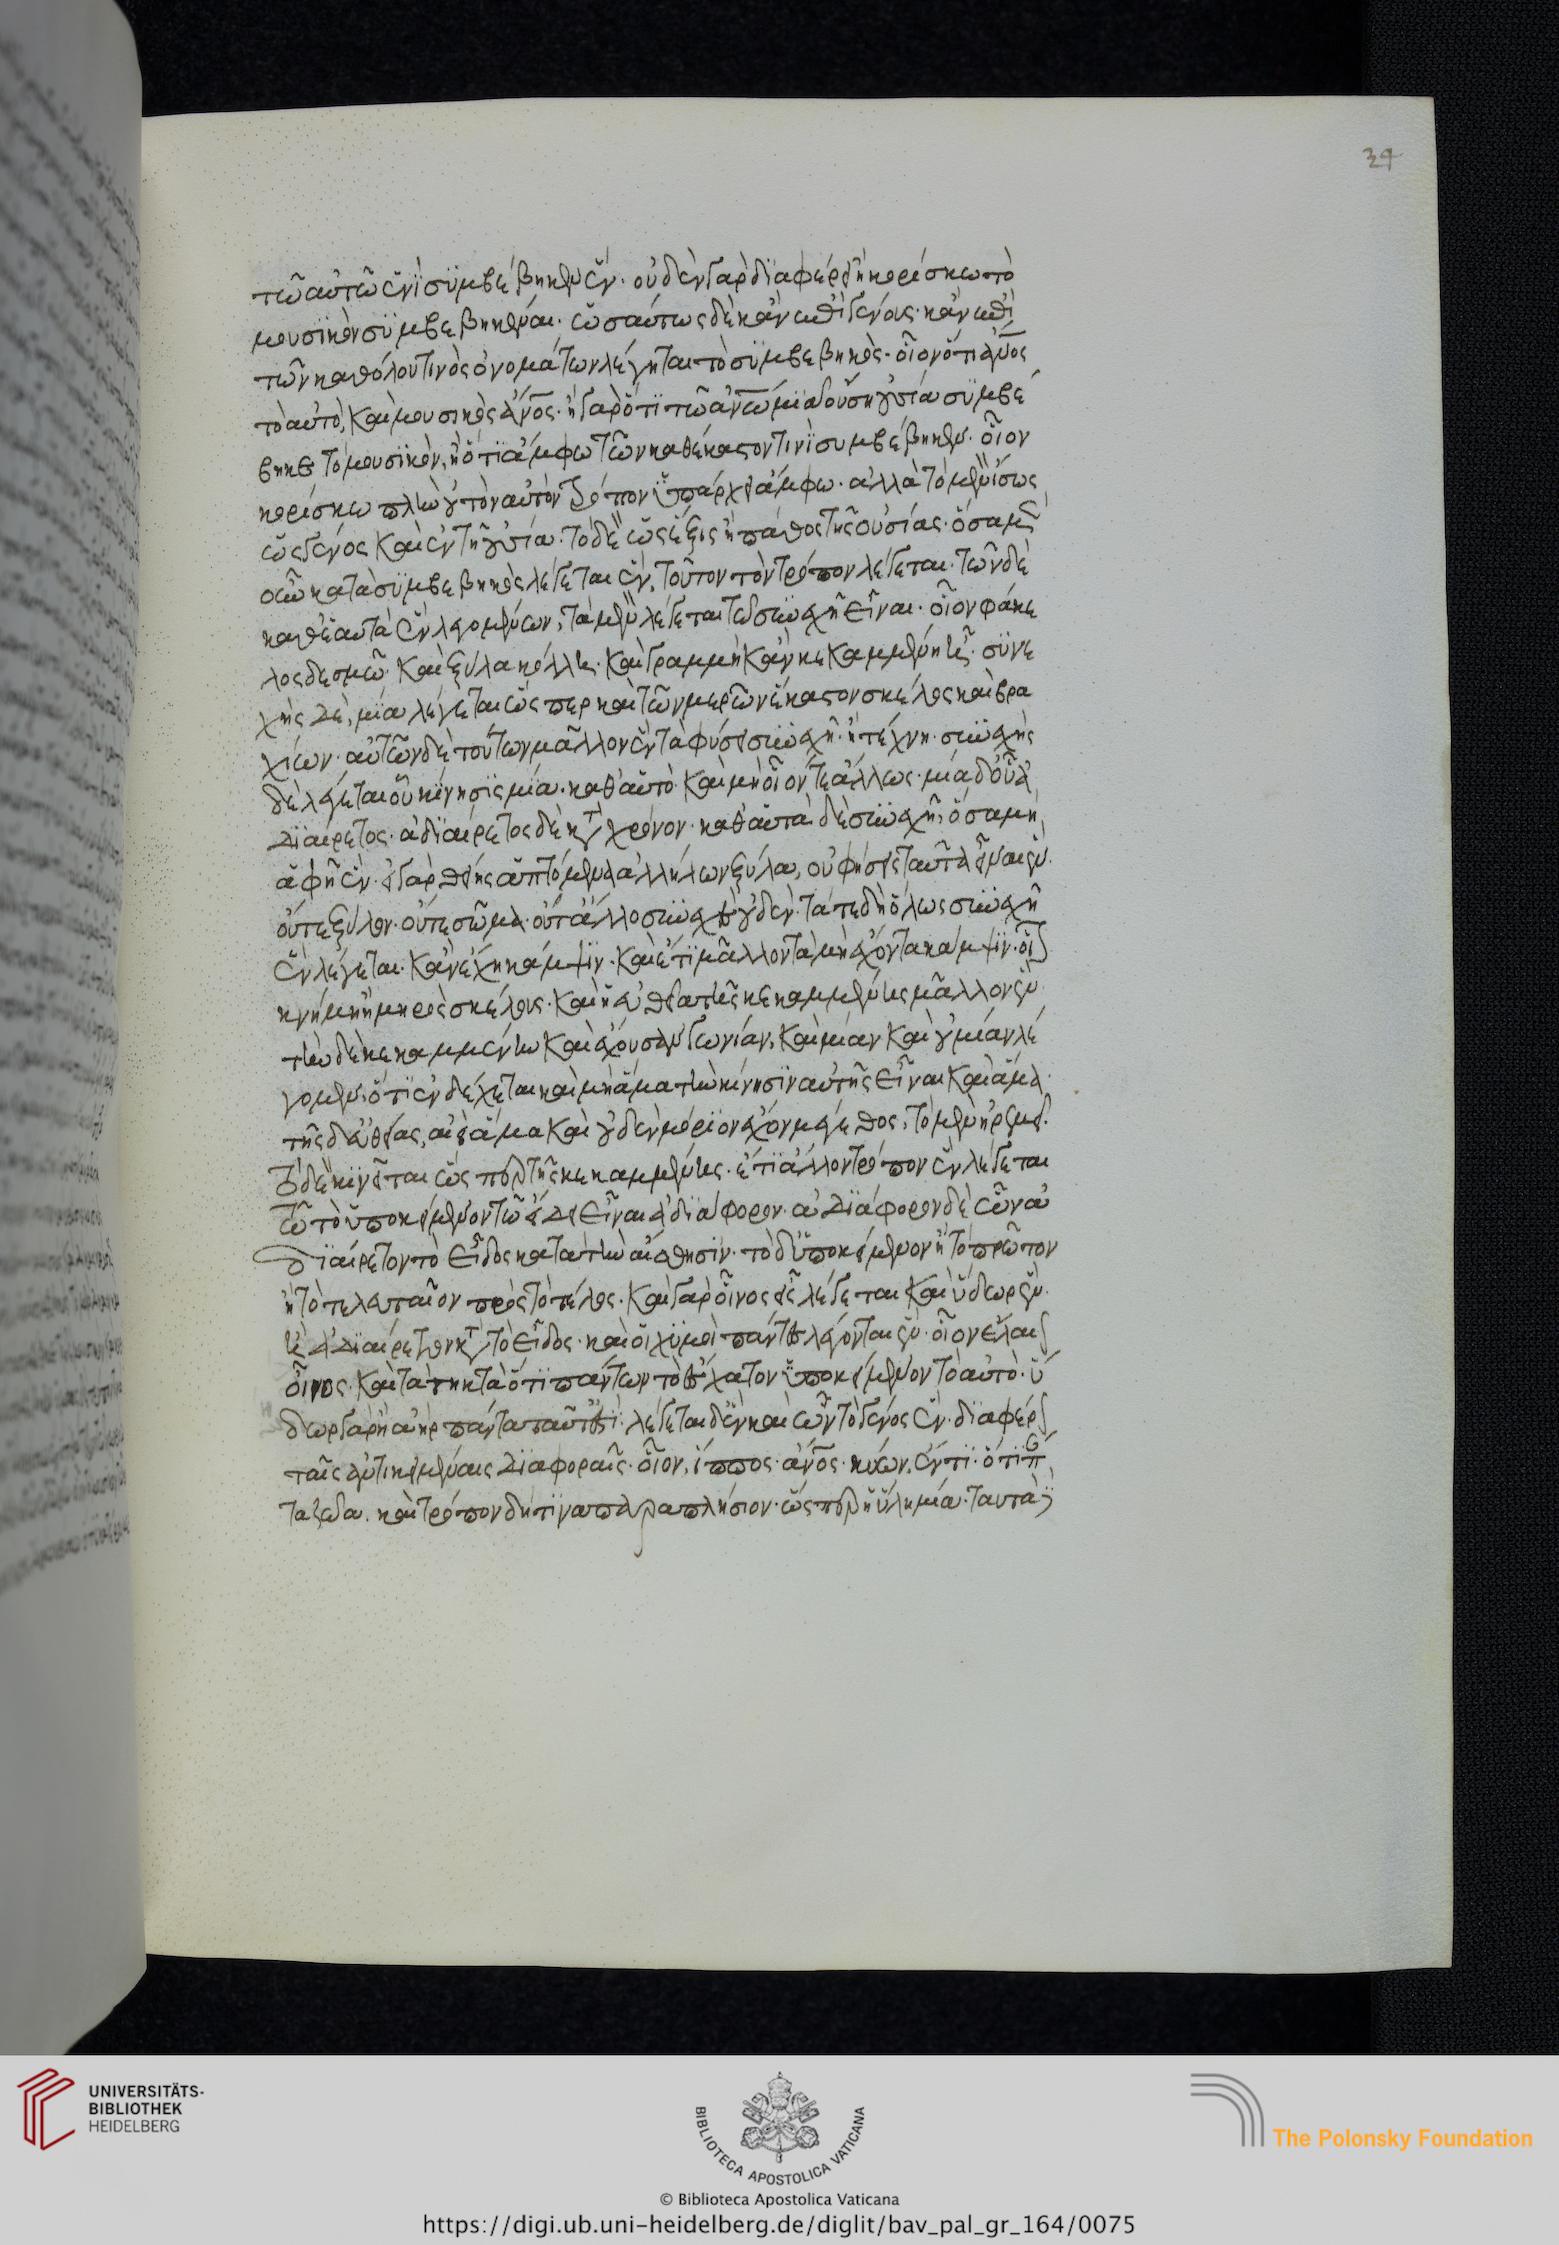 τῶ αὐτῶ ἑνὶ συμβέβηκεν ἕν· οὐδὲν γὰρ διαφέρει ἢ κορίσκω τὸ
μουσικὸν συμβεβηκέναι· ὡσαύτως δὲ κἂν ἐπὶ γένους· κἂν ἐπὶ
τῶν καθόλου τινὸς ὀνομάτων λέγηται τὸ συμβεβηκὸς· οἷον ὅτι ἄνος
τὸ αὐτὸ, καὶ μουσικὸς ἄνος· ἢ γὰρ ὅτι τῶ ἀνω μιᾶ οὔση οὐσία συμβέ
βηκε τὸ μουσικὸν, ἢ ὅτι ἄμφω τῶν καθέκαστον τινὶ συμβέβηκεν· οἷον
κορίσκω πλὴν οὐ τὸν αὐτὸν τρόπον ὑπάρχει ἄμφω· ἀλλὰ τὸ μὲν ἴσως
ὡς γένος καὶ ἐν τῆ οὐσία· τὸ δὲ ὡς ἕξις ἢ πάθος τῆς οὐσίας· ὅσα μὲν
οὖν κατὰ συμβεβηκὸς λέγεται ἓν, τοῦτον τὸν τρόπον λέγεται· τῶν δὲ
καθ' ἑαυτὰ ἓν λεγομένων, τὰ μὲν λέγεται τῶ συνεχῆ εἶναι· οἷον φάκε
λος δεσμῶ καὶ ξύλα κόλλη· καὶ γραμμὴ κἂν κεκαμμένη ἦ· συνε
χὴς δὲ, μία λέγεται ὥσπερ καὶ τῶν μερῶν ἕκαστον σκέλος καὶ βρα
χίων· αὐτῶν δὲ τούτων μᾶλλον ἓν τὰ φύσει συνεχῆ· ἢ τέχνη· συνεχὴς
δὲ λέγεται οὗ κίνησις μία· καθ' αὑτὸ καὶ μὴ οἷόν τε ἄλλως· μία δ' οὗ ἀ
διαίρετος· ἀδιαίρετος δὲ κτ χρόνον· καθ' αὑτὰ δὲ συνεχῆ, ὅσα μὴ
ἁφῆ ἓν· εἰ γὰρ θείης ἁπτόμενα ἀλλήλων ξύλα, οὐ φήσεις ταῦτα εἶναι ἓν
οὔτε ξύλον· οὔτε σῶμα· οὔτ' ἄλλο συνεχὲς οὐδὲν· τά τε δὴ ὅλως συνεχῆ
ἓν λέγεται· κἂν ἔχη κάμψιν· καὶ ἔτι μᾶλλον τὰ μὴ ἔχοντα κάμψιν· οἷον
κνήμη ἢ μηρὸς σκέλους· καὶ ἡ εὐθεῖα τῆς κεκαμμένης μᾶλλον ἓν
τὴν δὲ κεκαμμένην καὶ ἔχουσαν γωνίαν, καὶ μίαν καὶ οὐ μίαν λέ
γομεν, ὅτι ἐνδέχεται καὶ μὴ ἅμα τὴν κίνησιν αὐτῆς εἶναι καὶ ἅμα·
τῆς δ' εὐθείας, αἰεὶ ἅμα καὶ οὐδὲν μόριον ἔχον μέγεθος, τὸ μὲν ἠρεμεῖ·
τὸ δὲ κινεῖται ὥσπερ τῆς κεκαμμένης· ἔτι ἄλλον τρόπον ἓν λέγεται
τῶ τὸ ὑποκείμενον τῶ εἴδει εἶναι ἀδιάφορον· ἀδιάφορον δὲ ὧν ἀ
διαίρετον τὸ εἶδος κατὰ τὴν αἴσθησιν· τὸ δ' ὑποκείμενον ἢ τὸ πρῶτον
ἢ τὸ τελευταῖον πρὸς τὸ τέλος· καὶ γὰρ οἶνος εἷς λέγεται καὶ ὕδωρ ἓν
ἧ ἀδιαίρετον κτ τὸ εἶδος· καὶ οἱ χυμοὶ πάντες λέγονται ἓν· οἷον ἔλαιον
οἶνος· καὶ τὰ τηκτὰ ὅτι πάντων τὸ ἔσχατον ὑποκείμενον τὸ αὐτὸ· ὕ
δωρ γὰρ ἢ ἀὴρ πάντα ταῦτ' ἐστὶ· λέγεται δ' ἓν καὶ ὧν τὸ γένος ἓν· διαφέρον
ταῖς ἀντικειμέναις διαφοραῖς· οἷον, ἵππος· ἄνος· κύων, ἕν τι· ὅτι π
τα ζῶα· καὶ τρόπον δή τινα παραπλήσιον· ὥσπερ ἡ ὕλη μία· ταυτὰ
34
UNIVERSITÄTS-
BIBLIOTHEK
HEIDELBERG
BIBLIOTECA APOSTOLICA VATICANA
The Polonsky Foundation
© Biblioteca Apostolica Vaticana
https://digi.ub.uni-heidelberg.de/diglit/bav_pal_gr_164/0075